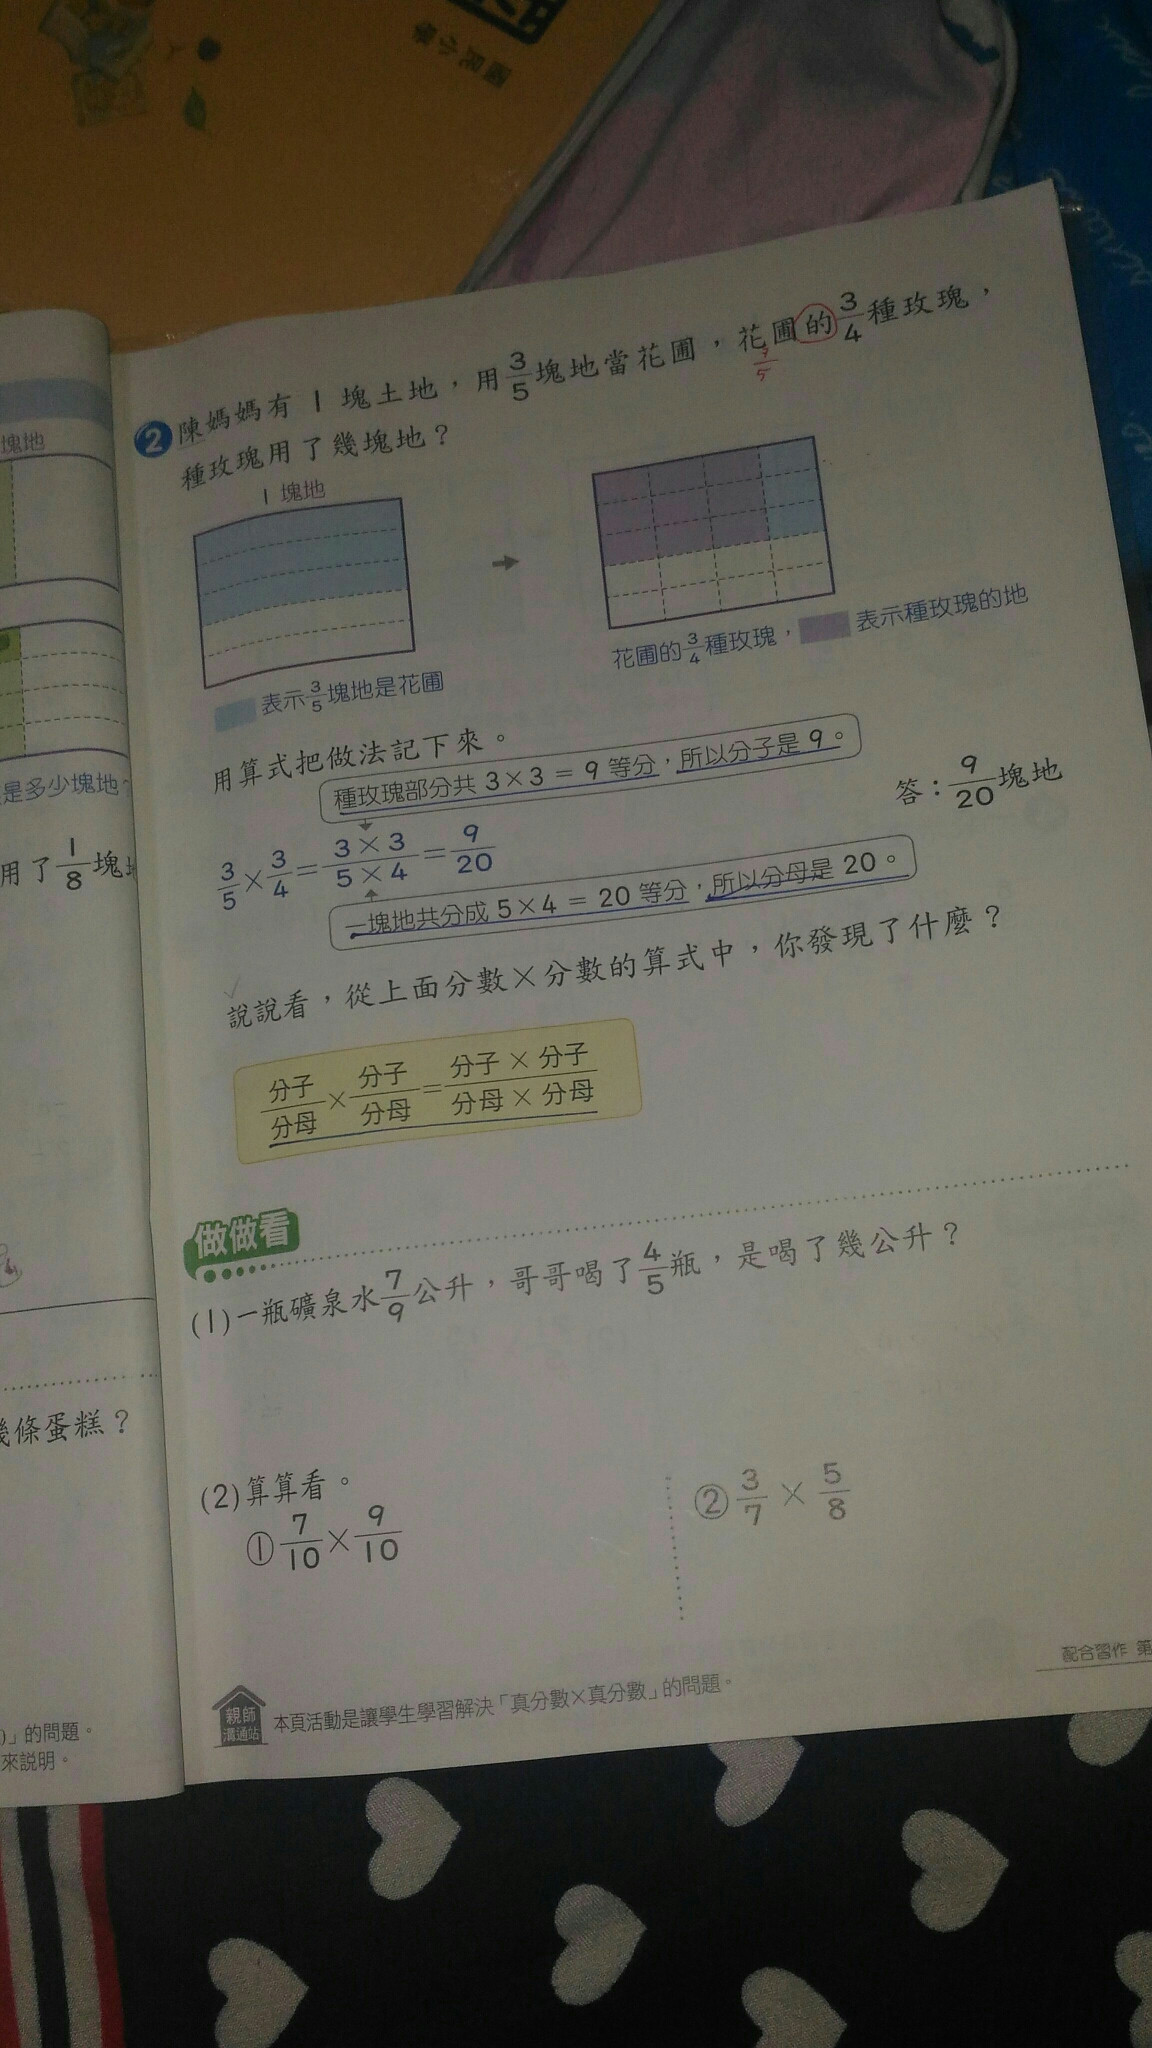 國民小學
塊地
是多少塊地?
用了1/8塊
幾條蛋糕?
)」的問題。
來說明。
2 陳媽媽有 1 塊土地,用3/5塊地當花圃,花圃的3/4種玫瑰,
3/5
種玫瑰用了幾塊地?
1 塊地
表示3/5塊地是花圃
花圃的3/4種玫瑰, 表示種玫瑰的地
用算式把做法記下來。
種玫瑰部分共 3×3 = 9 等分,所以分子是 9。
3/5 × 3/4 = 3×3/5×4 = 9/20
答:9/20塊地
一塊地共分成 5×4 = 20 等分,所以分母是 20。
說說看,從上面分數×分數的算式中,你發現了什麼?
分子/分母 × 分子/分母 = 分子×分子/分母×分母
做做看
(1)一瓶礦泉水7/9公升,哥哥喝了4/5瓶,是喝了幾公升?
(2)算算看。
① 7/10 × 9/10
② 3/7 × 5/8
配合習作 第
親師溝通站 本頁活動是讓學生學習解決「真分數×真分數」的問題。